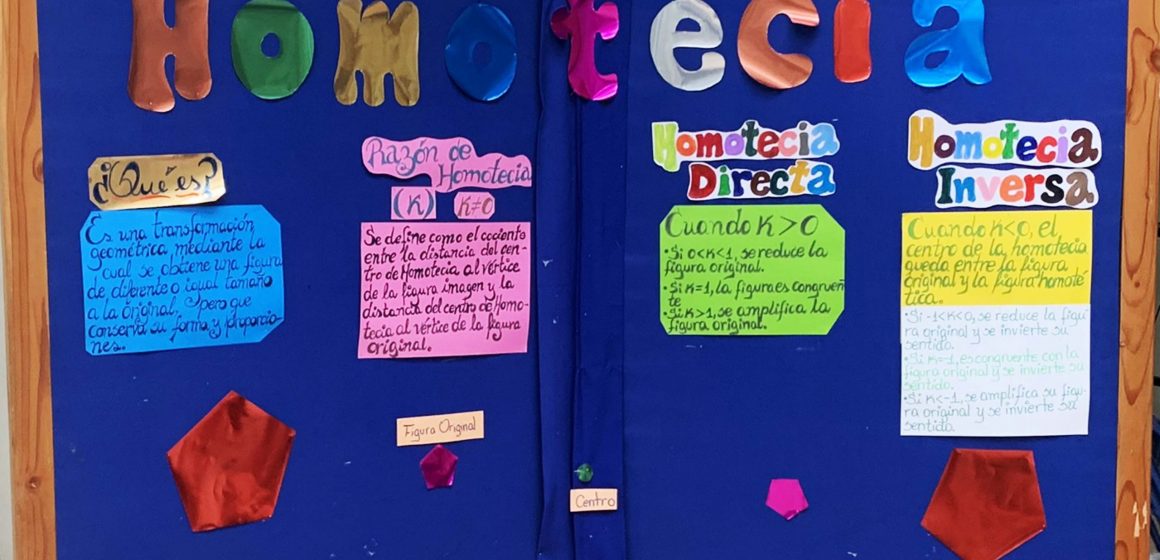 Homotecia
¿Qué es?
Es una transformación
geométrica, mediante la
cual se obtiene una figura
de diferente o igual tamaño
a la original, pero que
conserva su forma y proporcio-
nes.
Razón de
Homotecia
(K) K≠0
Se define como el cociente
entre la distancia del cen-
tro de Homotecia al vértice
de la figura imagen y la
distancia del centro de Homo-
tecia al vértice de la figura
original.
Homotecia
Directa
Cuando K > 0
• Si 0<K<1, se reduce la
figura original.
• Si K=1, la figura es congruen
te
• Si K>1, se amplifica la
figura original.
Homotecia
Inversa
Cuando K<0, el
centro de la homotecia
queda entre la figura
original y la figura homoté
tica.
• Si -1<K<0, se reduce la figu
ra original y se invierte su
sentido.
• Si K=-1, es congruente con la
figura original y se invierte su
sentido.
• Si K<-1, se amplifica su figu-
ra original y se invierte su
sentido.
Figura Original
Centro